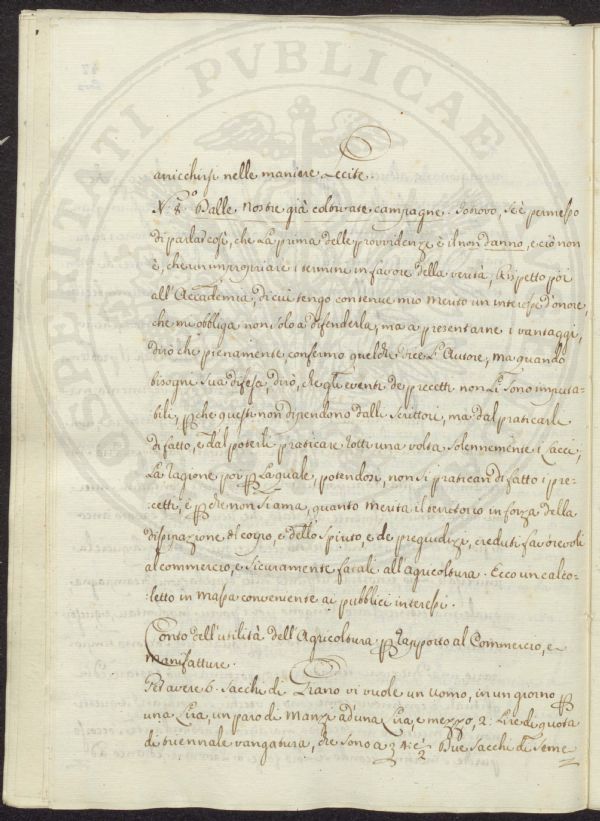 PROSPERITATI PVBLICAE
arricchirsi nelle maniere Lecite.
N. 8.° Dalle nostre già coltivate campagne. Io trovo, se è permesso
di parlar così, che La prima delle provvidenze è il non danno, e ciò non
è, che un impropriare i termini in favore della verità, Rispetto poi
all'Accademia, di cui tengo contenue mio merito un interesse d'onore,
che mi obbliga non solo a difenderla, ma a presentarne i vantaggi,
dirò che pienamente confermo quel che dice L'Autore, ma quando
bisogni sua difesa, dirò, che gli eventi de precetti non Li sono imputa-
bili, pche questi non dipendono dalli Scrittori, ma dal praticarli
di fatto, e dal poterli praticare rotti una volta solennemente i Lacci,
La ragione poi p La quale, potendosi, non si pratican di fatto i pre-
cetti, è pche non si ama, quanto merita il territorio in forza della
disparazione del corpo, e dello spirito, e de pregiudizi, creduti favorevoli
al commercio, e sicuramente fatali all'agricoltura. Ecco un calco-
letto in massa conveniente ai pubblici interessi.
Conto dell'utilità dell'Agricoltura p rapporto al Commercio, e
manifatture.
Per avere 6. Sacchi di Grano vi vuole un uomo, in un giorno p
una Lira, un paro di Manzi ad una Lira, e mezzo, 2: Lire di quota
di biennale vangatura, che sono Due Sacchi di Seme